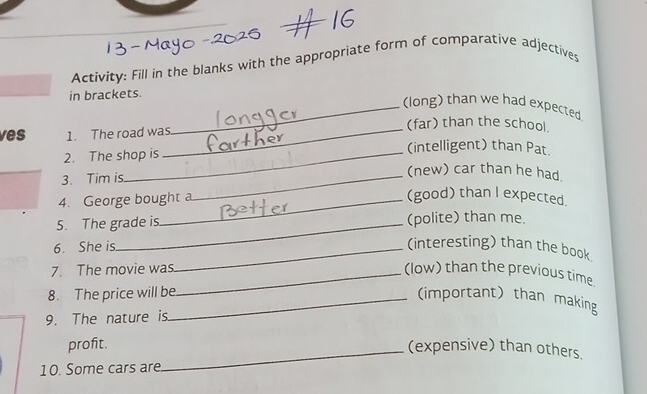 13-Mayo-2025 #16
Activity: Fill in the blanks with the appropriate form of comparative adjectives
in brackets.
ves
1. The road was longger (long) than we had expected
2. The shop is farther (far) than the school.
3. Tim is (intelligent) than Pat.
4. George bought a (new) car than he had.
5. The grade is Better (good) than I expected.
6. She is (polite) than me.
7. The movie was (interesting) than the book.
8. The price will be (low) than the previous time.
9. The nature is (important) than making
profit.
10. Some cars are (expensive) than others.